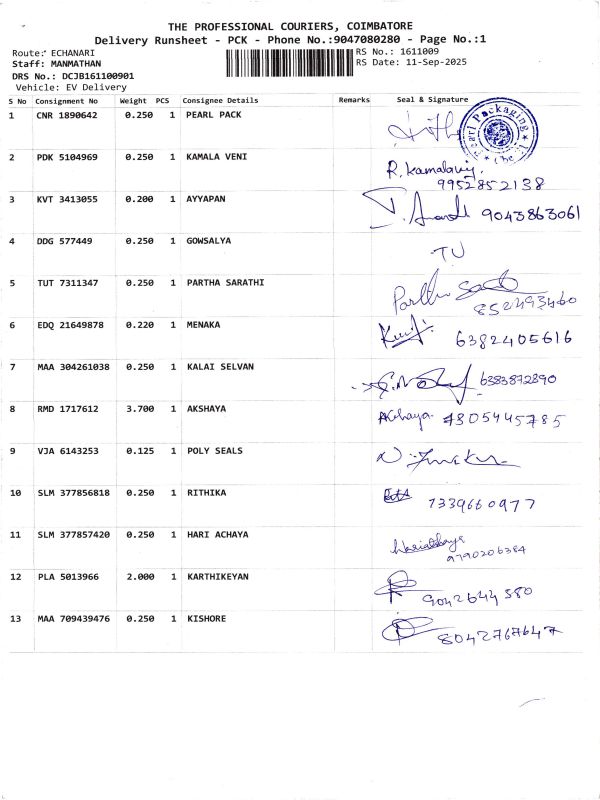 THE PROFESSIONAL COURIERS, COIMBATORE
Delivery Runsheet - PCK - Phone No.:9047080280 - Page No.:1
Route: ECHANARI
RS No.: 1611009
Staff: MANMATHAN
RS Date: 11-Sep-2025
DRS No.: DCJB161100901
Vehicle: EV Delivery
S No Consignment No Weight PCS Consignee Details Remarks Seal & Signature
1 CNR 1890642 0.250 1 PEARL PACK
Pearl Packaging
2 PDK 5104969 0.250 1 KAMALA VENI R. Kamalaveni
9952852138
3 KVT 3413055 0.200 1 AYYAPAN 9043863061
4 DDG 577449 0.250 1 GOWSALYA TU
5 TUT 7311347 0.250 1 PARTHA SARATHI Partha
852493460
6 EDQ 21649878 0.220 1 MENAKA 6382405616
7 MAA 304261038 0.250 1 KALAI SELVAN 6383872890
8 RMD 1717612 3.700 1 AKSHAYA Akshaya 4805445785
9 VJA 6143253 0.125 1 POLY SEALS
10 SLM 377856818 0.250 1 RITHIKA 7339660977
11 SLM 377857420 0.250 1 HARI ACHAYA
9790206384
12 PLA 5013966 2.000 1 KARTHIKEYAN 9042644580
13 MAA 709439476 0.250 1 KISHORE 8042767647